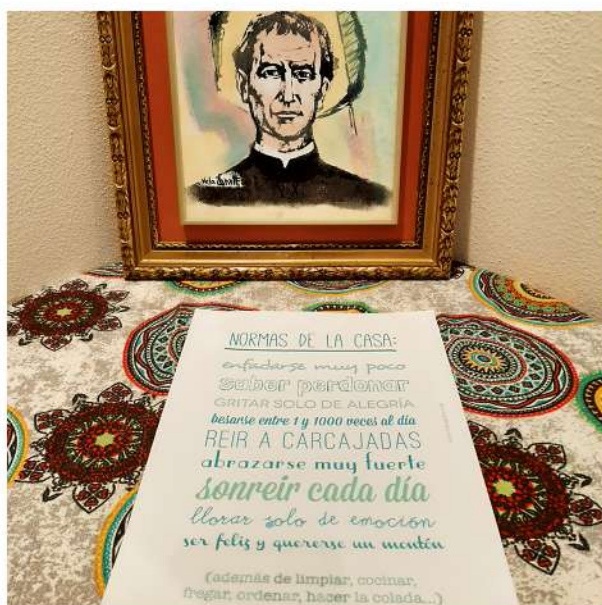 NORMAS DE LA CASA:
enfadarse muy poco
saber perdonar
GRITAR SOLO DE ALEGRÍA
besarse entre 1 y 1000 veces al día
REIR A CARCAJADAS
abrazarse muy fuerte
sonreir cada día
llorar solo de emoción
ser feliz y quererse un montón
(además de limpiar, cocinar,
fregar, ordenar, hacer la colada...)